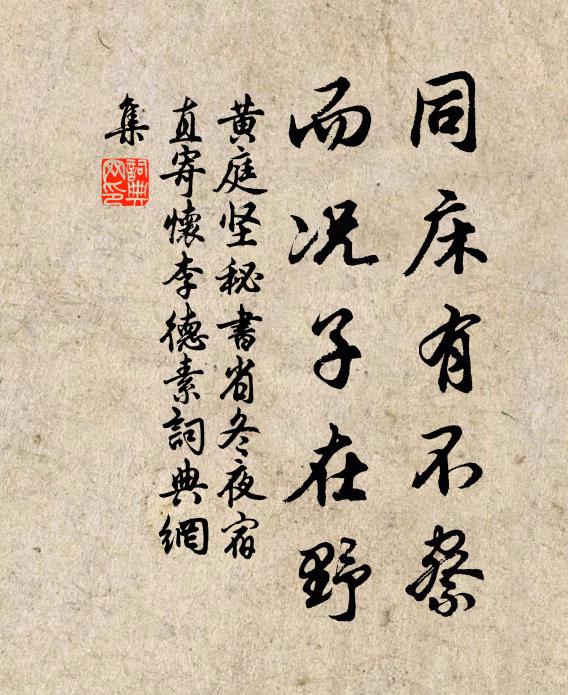 同床有不察
而况子在野
黄庭坚秘書省冬夜宿
直寄懷李德素詞典網
集
詞典
网印